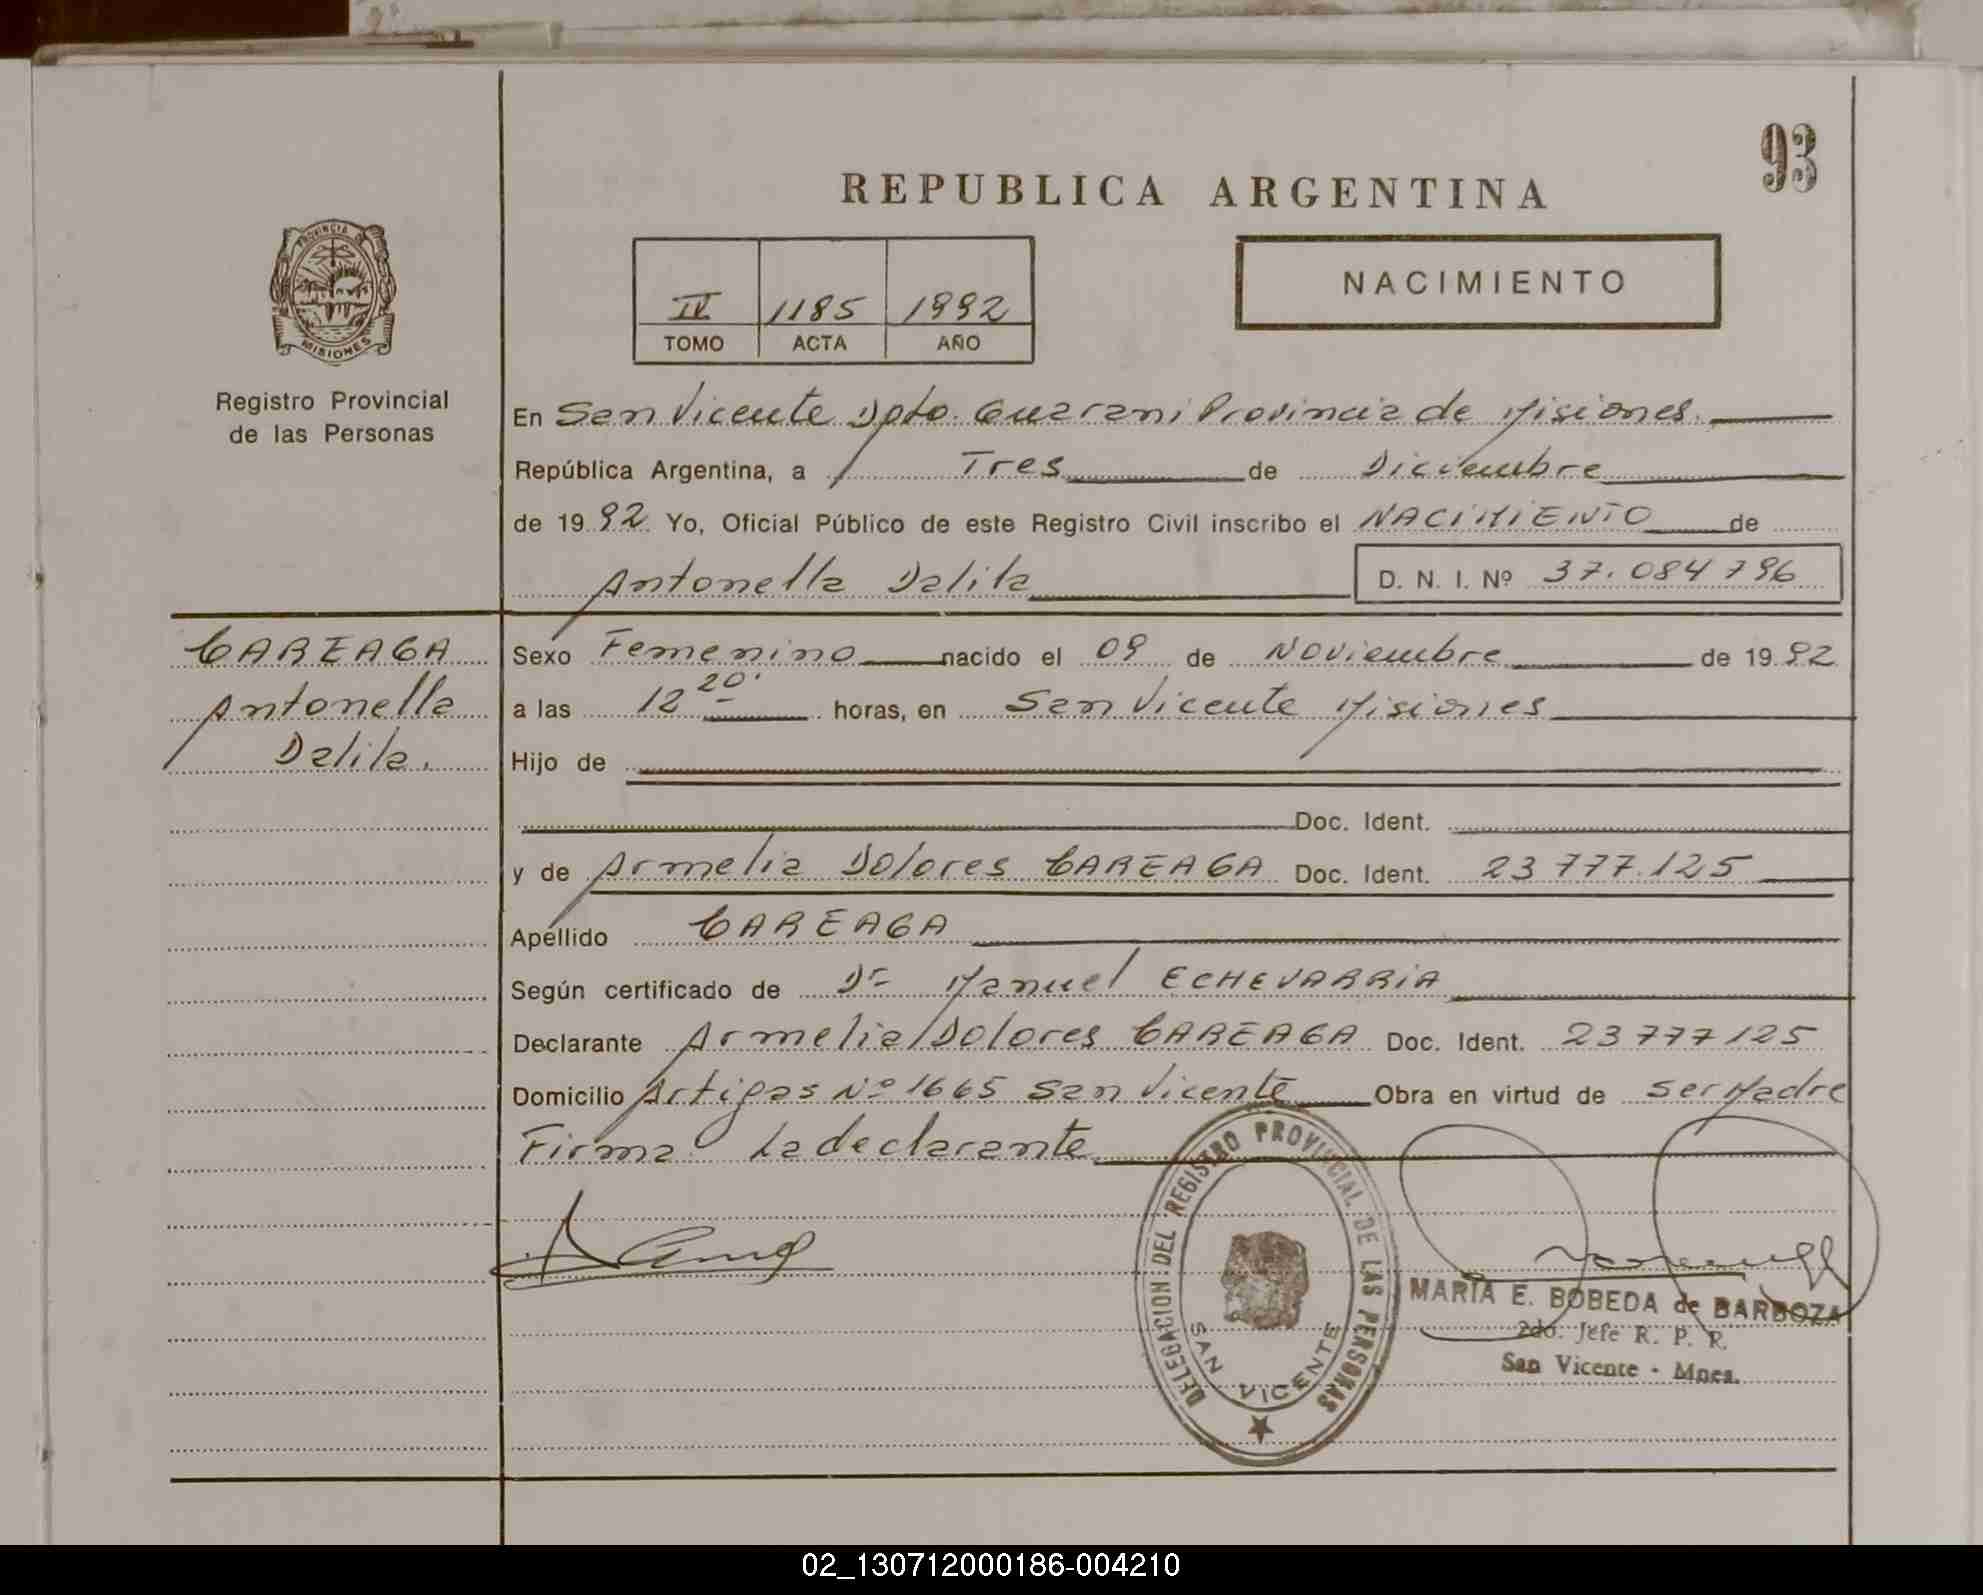 93
REPUBLICA ARGENTINA
PROVINCIA DE
MISIONES
NACIMIENTO
IV 1185 1992
TOMO ACTA AÑO
Registro Provincial
de las Personas
En San Vicente Dpto. Guarani Provincia de Misiones.
República Argentina, a Tres de Diciembre
de 1992. Yo, Oficial Público de este Registro Civil inscribo el NACIMIENTO de
Antonella Dalila D. N. I. Nº 37.084796
CAREAGA
Antonella
Dalila.
Sexo Femenino nacido el 09 de Noviembre de 1992
a las 12 20' horas, en San Vicente Misiones
Hijo de
Doc. Ident.
y de Armelia Dolores CAREAGA Doc. Ident. 23777.125
Apellido CAREAGA
Según certificado de Dr Manuel ECHEVARRIA
Declarante Armelia Dolores CAREAGA Doc. Ident. 23777125
Domicilio Artigas Nº 1665 San Vicente Obra en virtud de ser Madre
Firma La declarante
DELEGACION DEL REGISTRO PROVINCIAL DE LAS PERSONAS
SAN VICENTE
MARIA E. BOBEDA de BARBOZA
2do. Jefe R. P. P.
San Vicente - Mnes.
02_130712000186-004210